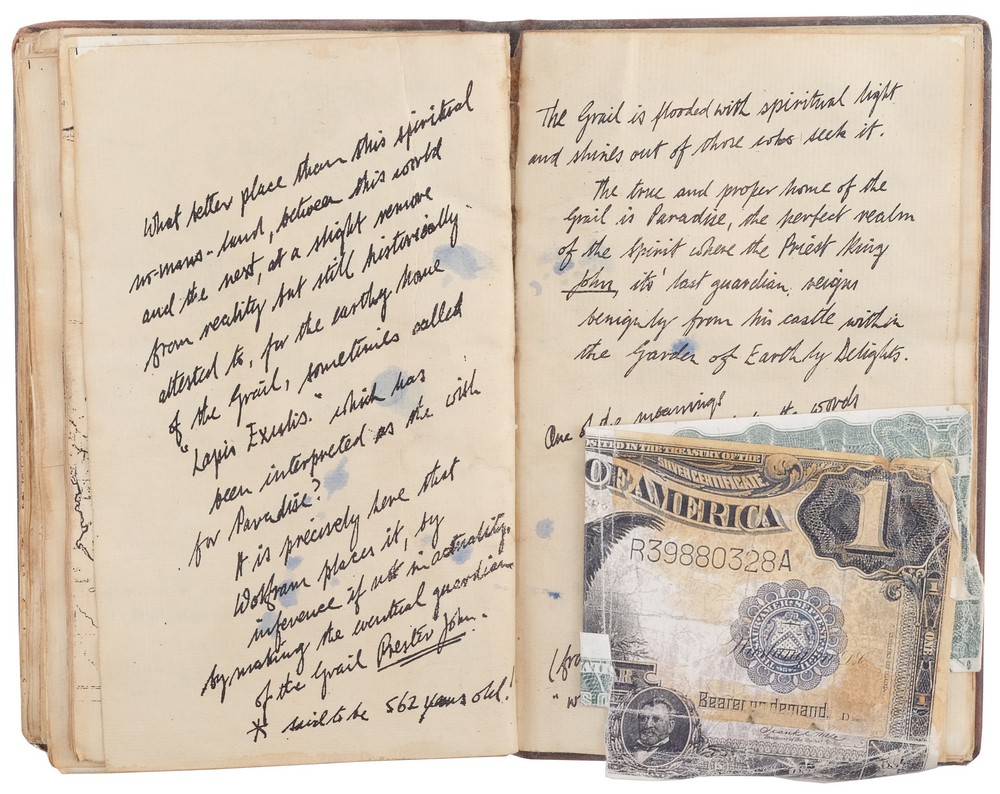 What better place than this spiritual
no-mans-land, between this world
and the next, at a slight remove
from reality but still historically
attested to, for the earthly home
of the Grail, sometimes called
"Lapis Exulis." which has
been interpreted as the wish
for Paradise?
It is precisely here that
Wolfram places it, by
inference if not in actuality,
by making the eventual guardian
of the Grail Prester John.
* said to be 562 years old!
The Grail is flooded with spiritual light
and shines out of those who seek it.
The true and proper home of the
Grail is Paradise, the perfect realm
of the Spirit where the Priest King
John, its' last guardian, reigns
benignly from his castle within
the Garden of Earthly Delights.
One of the meanings
the words
(fro
"w
SITED IN THE TREASURY OF THE
SILVER CERTIFICATE
OF AMERICA
1
R39880328A
Bearer on demand.